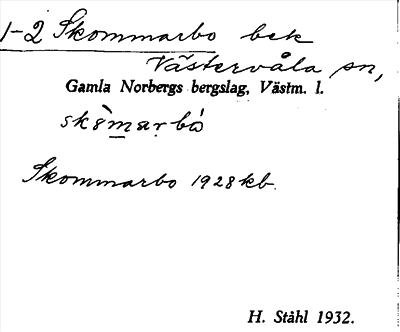 1-2 Skommarbo bek
Västervåla sn,
Gamla Norbergs bergslag, Västm. l.
skömarbo
Skommarbo 1928 kb.
H. Ståhl 1932.